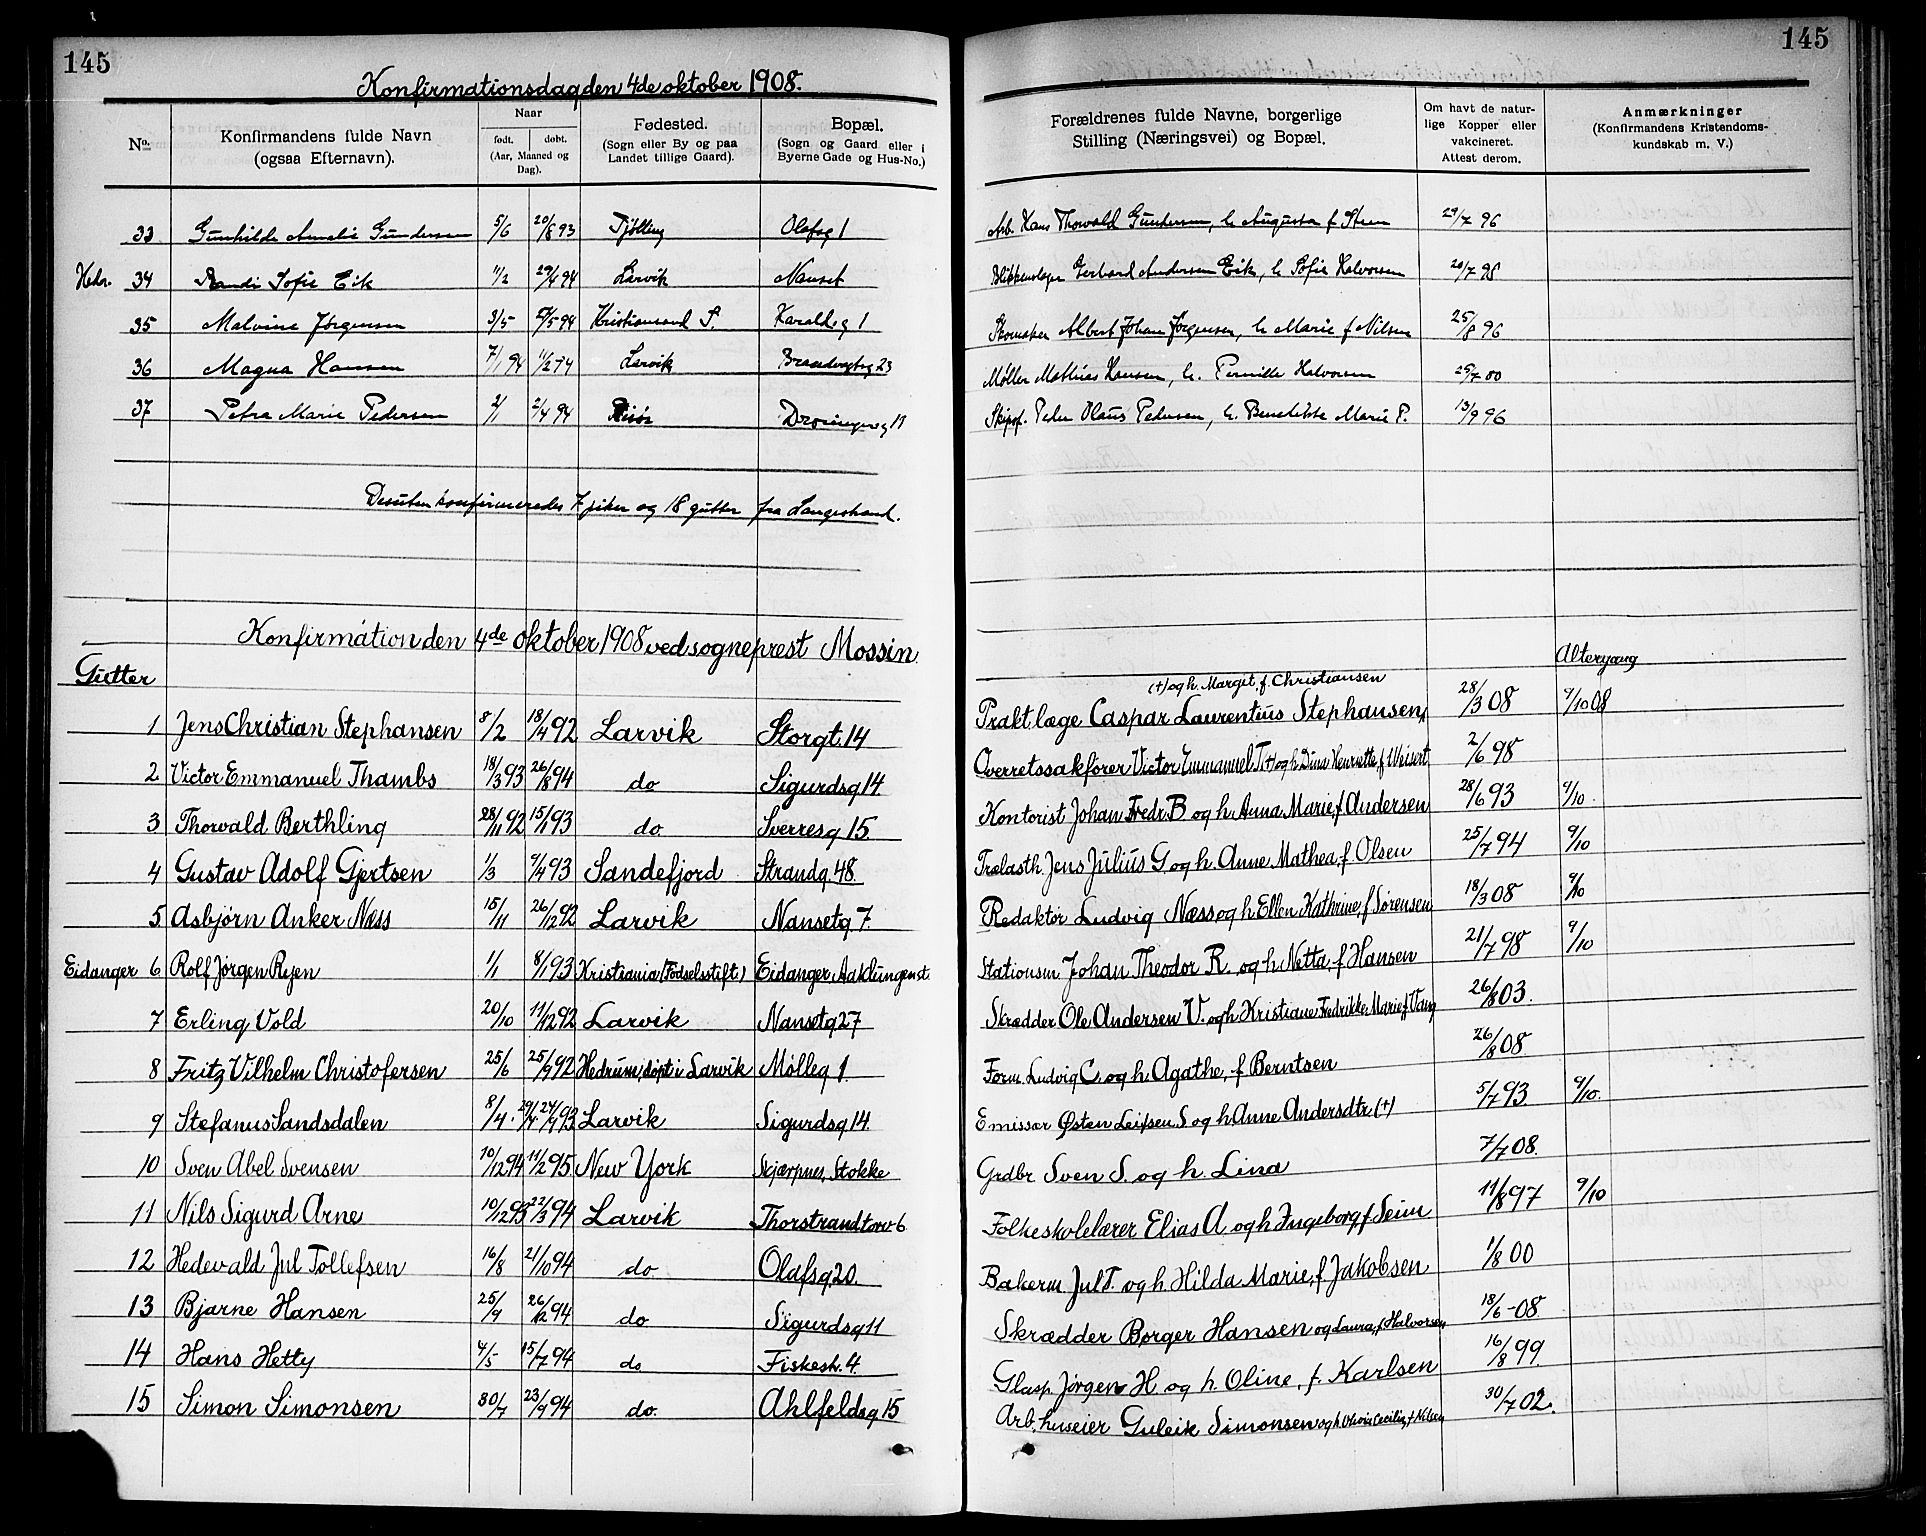 145
145
Konfirmationsdag den 4de oktober 1908.
No. Konfirmandens fulde Navn (ogsaa Efternavn). Naar født. døbt. (Aar, Maaned og Dag). Fødested. (Sogn eller By og paa Landet tillige Gaard). Bopæl. (Sogn og Gaard eller i Byerne Gade og Hus-No.) Forældrenes fulde Navne, borgerlige Stilling (Næringsvei) og Bopæl. Om havt de naturlige Kopper eller vakcineret. Attest derom. Anmærkninger (Konfirmandens Kristendomskundskab m. V.)
33 Gunhilde Amalie Gundersen 5/6 20/8 93 Tjølling Olafsg 1 Arb. Hans Thorvald Gundersen, h. Augusta f. 29/7 96
Hedr. 34 Randi Sofie Eik 11/2 29/4 94 Larvik Nanset Blikkenslager Gerhard Andersen Eik, h. Sofie Halvorsen 20/7 98
35 Malvine Jørgensen 3/5 94 Kristiansand S. Haraldsg 1 Skomaker Albert Johan Jørgensen, h. Marie f. Nilsen 25/8 96
36 Magna Hansen 7/1 94 11/2 94 Larvik 23 Møller Mathias Hansen, h. Pernille Halvorsen 25/7 00
37 Petra Marie Pedersen 2/1 2/4 94 Risør Dronningensg 11 Skipsf. Peder Olaus Pedersen, h. Benedikte Marie P. 13/9 96
Desuten konfirmeredes 7 piker og 18 gutter fra Langestrand.
Konfirmation den 4de oktober 1908 ved sogneprest Mossin
Altergang
Gutter
(+) og h. Marget, f. Christiansen
1 Jens Christian Stephansen 8/2 18/4 92 Larvik Storgt. 14 Prakt. læge Caspar Laurentius Stephansen, 28/3 08 9/10 08
2 Victor Emmanuel Thambs 18/3 93 26/8 94 do Sigurdsg 14 Overretssakfører Victor Emmanuel T. (+) og h. Dina Henriette, f Weisert 2/6 98
3 Thorvald Berthling 28/11 92 15/1 93 do Sverresg 15. Kontorist Johan Fredr. B og h. Anna Marie, f Andersen 28/6 93 9/10.
4 Gustav Adolf Gjertsen 1/3 9/4 93 Sandefjord Strandg. 48. Trælasth. Jens Julius G. og h. Anne Mathea, f Olsen 25/7 94 9/10
5 Asbjørn Anker Næss 15/11 26/12 92 Larvik Nansetg 7. Redaktør Ludvig Næss og h Ellen Kathrine, f Sørensen 18/3 08 9/10
Eidanger 6 Rolf Jørgen Ryen 1/1 8/1 93 Kristiania (Fødselsstift.) Eidanger, Aaklungen st Stationsm. Johan Theodor R. og h Netta, f Hansen 21/7 98 9/10
7 Erling Vold 20/10 11/12 92 Larvik Nansetg 27 Skrædder Ole Andersen V. og h Kristiane Fredrikke Marie f Vang 26/8 03.
8 Fritz Vilhelm Christofersen 25/6 25/9 92 Hedrum, døpt i Larvik Mølleg 1. Form. Ludvig C. og h Agathe, f Berntsen 26/8 08.
9 Stefanus Sandsdalen 8/4. 29/4 24/9 93 Larvik Sigurdsg 14. Emissær Østen Leifsen S og h Anne Andersdtr. (+) 5/7 93. 9/10.
10 Sven Abel Svensen 10/12 94 11/2 95 New York Skjærpnes, Stokke Grdbr Sven S. og h. Lina 7/7 08.
11 Nils Sigurd Arne 10/12 93 22/3 94 Larvik Thorstrandtorv 6 Folkeskolelærer Elias A og h Ingeborg, f Seim 11/8 97 9/10
12 Hedevald Jul Tollefsen 16/8 21/10 94 do Olafsg 20. Bakerm Jul T. og h. Hilda Marie, f Jakobsen 1/8 00
13 Bjarne Hansen 25/9 26/12 94 do Sigurdsg 11 Skrædder Borger Hansen og Laura, f Halvorsen 18/6-08
14 Hans Hetty 4/5 15/7 94 do Fiskestr. 4. Glasp. Jørgen H og h. Oline, f. Karlsen 16/8 99.
15 Simon Simonsen 30/7 23/9 94 do. Ahlfeldsg 15 Arb., huseier Guleik Simonsen og h Cecilie, f Nilsen 30/7 02.